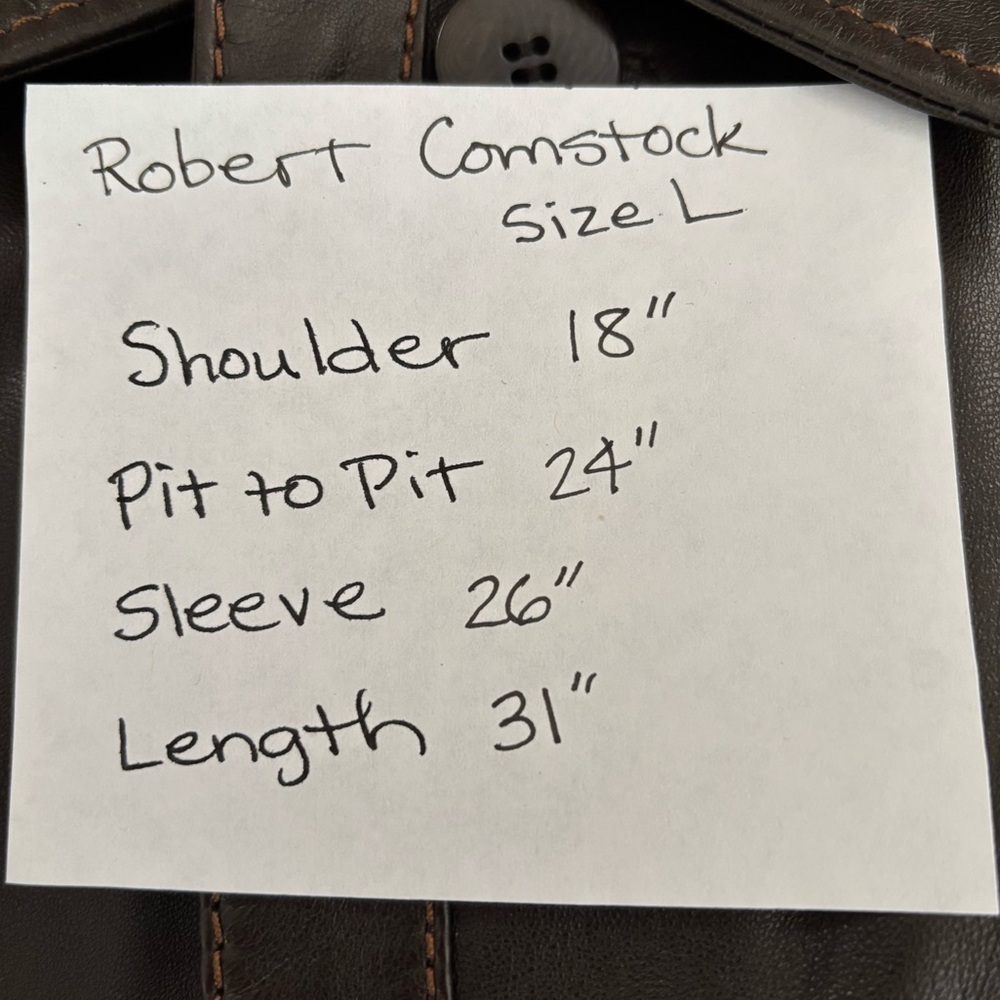 Robert Comstock
Size L
Shoulder 18"
Pit to Pit 24"
Sleeve 26"
Length 31"